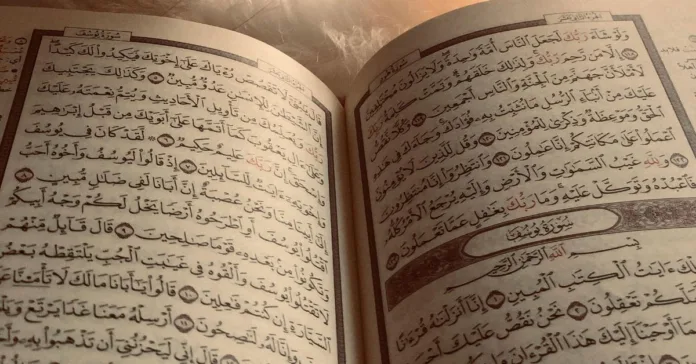 الجزء الثاني عشر
وَلَوْ شَآءَ رَبُّكَ لَجَعَلَ ٱلنَّاسَ أُمَّةً وَٰحِدَةً وَلَا يَزَالُونَ مُخْتَلِفِينَ
إِلَّا مَن رَّحِمَ رَبُّكَ وَلِذَٰلِكَ خَلَقَهُمْ وَتَمَّتْ كَلِمَةُ رَبِّكَ
لَأَمْلَأَنَّ جَهَنَّمَ مِنَ ٱلْجِنَّةِ وَٱلنَّاسِ أَجْمَعِينَ ١١٩ وَكُلًّا نَّقُصُّ
عَلَيْكَ مِنْ أَنۢبَآءِ ٱلرُّسُلِ مَا نُثَبِّتُ بِهِۦ فُؤَادَكَ وَجَآءَكَ فِى هَٰذِهِ
ٱلْحَقُّ وَمَوْعِظَةٌ وَذِكْرَىٰ لِلْمُؤْمِنِينَ ١٢٠ وَقُل لِّلَّذِينَ لَا يُؤْمِنُونَ
ٱعْمَلُوا۟ عَلَىٰ مَكَانَتِكُمْ إِنَّا عَٰمِلُونَ ١٢١ وَٱنتَظِرُوٓا۟ إِنَّا مُنتَظِرُونَ
١٢٢ وَلِلَّهِ غَيْبُ ٱلسَّمَٰوَٰتِ وَٱلْأَرْضِ وَإِلَيْهِ يُرْجَعُ ٱلْأَمْرُ كُلُّهُۥ
فَٱعْبُدْهُ وَتَوَكَّلْ عَلَيْهِ وَمَا رَبُّكَ بِغَٰفِلٍ عَمَّا تَعْمَلُونَ ١٢٣
سُورَةُ يُوسُفَ
بِسْمِ ٱللَّهِ ٱلرَّحْمَٰنِ ٱلرَّحِيمِ
ءَايَٰتُ ٱلْكِتَٰبِ ٱلْمُبِينِ ١ إِنَّآ أَنزَلْنَٰهُ قُرْءَٰنًا
تَعْقِلُونَ ٢ نَحْنُ نَقُصُّ عَلَيْكَ
أَوْحَيْنَآ إِلَيْكَ هَٰذَا ٱلْقُرْءَانَ
سُورَةُ يُوسُفَ
قَالَ يَٰبُنَىَّ لَا تَقْصُصْ رُءْيَاكَ عَلَىٰٓ إِخْوَتِكَ فَيَكِيدُوا۟ لَكَ كَيْدًا
إِنَّ ٱلشَّيْطَٰنَ لِلْإِنسَٰنِ عَدُوٌّ مُّبِينٌ ٥ وَكَذَٰلِكَ يَجْتَبِيكَ
رَبُّكَ وَيُعَلِّمُكَ مِن تَأْوِيلِ ٱلْأَحَادِيثِ وَيُتِمُّ نِعْمَتَهُۥ عَلَيْكَ
وَعَلَىٰٓ ءَالِ يَعْقُوبَ كَمَآ أَتَمَّهَا عَلَىٰٓ أَبَوَيْكَ مِن قَبْلُ إِبْرَٰهِيمَ
وَإِسْحَٰقَ إِنَّ رَبَّكَ عَلِيمٌ حَكِيمٌ ٦ لَّقَدْ كَانَ فِى يُوسُفَ
وَإِخْوَتِهِۦٓ ءَايَٰتٌ لِّلسَّآئِلِينَ ٧ إِذْ قَالُوا۟ لَيُوسُفُ وَأَخُوهُ أَحَبُّ
إِلَىٰٓ أَبِينَا مِنَّا وَنَحْنُ عُصْبَةٌ إِنَّ أَبَانَا لَفِى ضَلَٰلٍ مُّبِينٍ ٨
ٱقْتُلُوا۟ يُوسُفَ أَوِ ٱطْرَحُوهُ أَرْضًا يَخْلُ لَكُمْ وَجْهُ أَبِيكُمْ
وَتَكُونُوا۟ مِنۢ بَعْدِهِۦ قَوْمًا صَٰلِحِينَ ٩ قَالَ قَآئِلٌ مِّنْهُمْ
لَا تَقْتُلُوا۟ يُوسُفَ وَأَلْقُوهُ فِى غَيَٰبَتِ ٱلْجُبِّ يَلْتَقِطْهُ بَعْضُ
ٱلسَّيَّارَةِ إِن كُنتُمْ فَٰعِلِينَ ١٠ قَالُوا۟ يَٰٓأَبَانَا مَا لَكَ لَا تَأْمَ۫نَّا
وَإِنَّا لَهُۥ لَنَٰصِحُونَ ١١ أَرْسِلْهُ مَعَنَا غَدًا يَرْتَعْ
قَالَ إِنِّى لَيَحْزُنُنِىٓ أَن تَذْهَبُوا۟ بِهِۦ